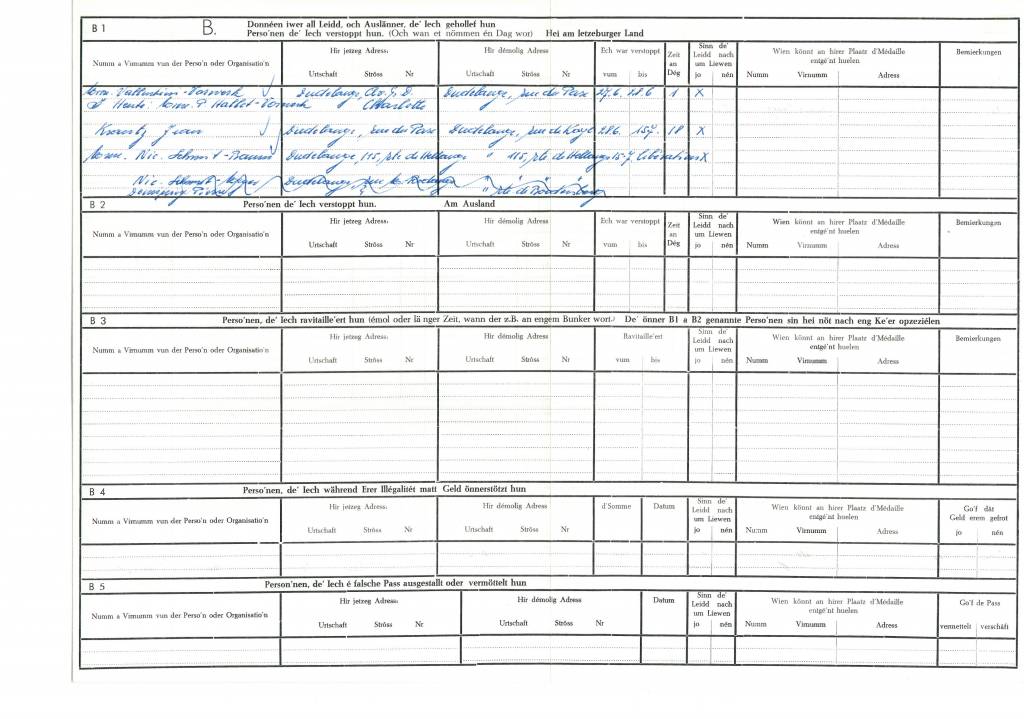 B 1 B. Donnéen iwer all Leidd, och Auslänner, de' Iech gehollef hun
Perso'nen de' Iech verstoppt hun. (Och wan et nömmen én Dag wor) Hei am letzeburger Land
Numm a Virnumm vun der Perso'n oder Organisatio'n Hir jetzeg Adress: Hir démolig Adress Ech war verstoppt Zeit an Dég Sinn de' Leidd nach um Liewen Wien könnt an hirer Plaatz d'Médaille entgé'nt huelen Bemierkungen
Urtschaft Ströss Nr Urtschaft Ströss Nr vum bis jo nén Numm Virnumm Adress
Mme. Dudelange, Av. G. D. Dudelange, rue du Parc 27.6. 28.6 1 X
Mme P. Hallet- Charlotte
Jean Dudelange, rue du Parc Dudelange, rue de 28.6. 15.7. 18 X
Mme. Nic. Schmit- Dudelange, 115, rte de Hellange " 115, rte de Hellange 15.7. libération X
Nic. Schmit- Dudelange, rue
" rte de
B 2 Perso'nen de' Iech verstoppt hun. Am Ausland
Numm a Virnumm vun der Perso'n oder Organisatio'n Hir jetzeg Adress: Hir démolig Adress Ech war verstoppt Zeit an Dég Sinn de' Leidd nach um Liewen Wien könnt an hirer Plaatz d'Médaille entgé'nt huelen Bemierkungen
Urtschaft Ströss Nr Urtschaft Ströss Nr vum bis jo nén Numm Virnumm Adress
B 3 Perso'nen, de' Iech ravitaille'ert hun (émol oder länger Zeit, wann der z.B. an engem Bunker wort.) De' önner B1 a B2 genannte Perso'nen sin hei nöt nach eng Ke'er opzeziélen
Numm a Virnumm vun der Perso'n oder Organisatio'n Hir jetzeg Adress: Hir démolig Adress Ravitaille'ert Sinn de' Leidd nach um Liewen Wien könnt an hirer Plaatz d'Médaille entgé'nt huelen Bemierkungen
Urtschaft Ströss Nr Urtschaft Ströss Nr vum bis jo nén Numm Virnumm Adress
B 4 Perso'nen, de' Iech während Erer Illégalitét matt Geld önnerstötzt hun
Numm a Virnumm vun der Perso'n oder Organisatio'n Hir jetzeg Adress: Hir démolig Adress d'Somme Datum Sinn de' Leidd nach um Liewen Wien könnt an hirer Plaatz d'Médaille entgé'nt huelen Go'f dät Geld erem gefrot
Urtschaft Ströss Nr Urtschaft Ströss Nr jo nén Numm Virnumm Adress jo nén
B 5 Person'nen, de' Iech é falsche Pass ausgestallt oder vermöttelt hun
Numm a Virnumm vun der Perso'n oder Organisatio'n Hir jetzeg Adress: Hir démolig Adress Datum Sinn de' Leidd nach um Liewen Wien könnt an hirer Plaatz d'Médaille entgé'nt huelen Go'f de Pass
Urtschaft Ströss Nr Urtschaft Ströss Nr jo nén Numm Virnumm Adress vermettelt verschäft